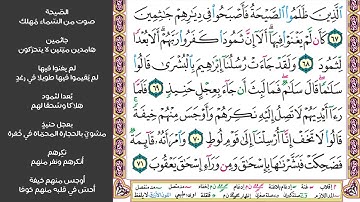 الَّذِينَ ظَلَمُوا الصَّيْحَةُ فَأَصْبَحُوا فِي دِيَٰرِهِمْ جَٰثِمِينَ
٦٧ كَأَن لَّمْ يَغْنَوْا فِيهَا أَلَا إِنَّ ثَمُودَا كَفَرُوا رَبَّهُمْ أَلَا بُعْدًا
لِّثَمُودَ ٦٨ وَلَقَدْ جَاءَتْ رُسُلُنَا إِبْرَٰهِيمَ بِالْبُشْرَىٰ قَالُوا
سَلَٰمًا قَالَ سَلَٰمٌ فَمَا لَبِثَ أَن جَاءَ بِعِجْلٍ حَنِيذٍ ٦٩ فَلَمَّا
رَءَا أَيْدِيَهُمْ لَا تَصِلُ إِلَيْهِ نَكِرَهُمْ وَأَوْجَسَ مِنْهُمْ خِيفَةً
قَالُوا لَا تَخَفْ إِنَّا أُرْسِلْنَا إِلَىٰ قَوْمِ لُوطٍ ٧٠ وَامْرَأَتُهُ قَائِمَةٌ
فَضَحِكَتْ فَبَشَّرْنَٰهَا بِإِسْحَٰقَ وَمِن وَرَاءِ إِسْحَٰقَ يَعْقُوبَ ٧١
الصّيحة
صوت من السّماء مُهلك
جاثمين
هامدين ميّتين لا يتحرّكون
لم يغنوا فيها
لم يُقيموا فيها طويلا في رغدٍ
بُعدا لثمود
هلاكا وسُحقا لهم
بعجل حنيذٍ
مشويّ بالحجارة المحماة في حُفرة
نكرهم
أنكرهم ونفر منهم
أوجس منهم خيفة
أحسّ في قلبه منهم خوفا